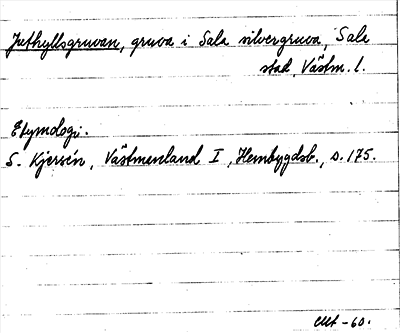 Juthyllsgruvan, gruva i Sala silvergruva, Sala
stad Västm. l.
Etymologi.
S. Kjersén, Västmanland I, Hembygdsb., s. 175.
-60.